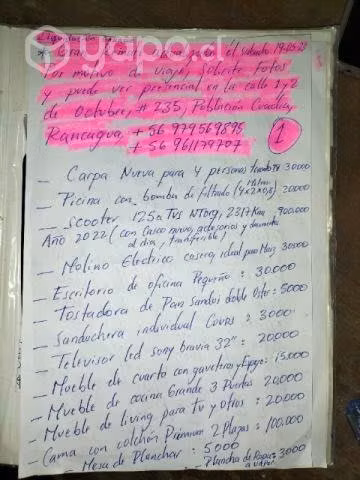 Liquidación
* Gran Remate hasta el sabado 19-08-23
Por motivo de viaje, solicite fotos
y puede ver presencial en la calle 1 y 2
de Octubre, # 235, Población
Rancagua, +56 979569895
+56 961179707
1
yapo.cl
— Carpa Nueva para 4 personas 30000
— Picina con bomba de filtrado (4x2x0,8) Metros 20000
— Scooter 125cc TVS NTorq, 2317 Km, 900.000
Año 2022 (con Casco nuevo, accesorios y documentos
al dia, transferible)
— Molino Electrico casero, ideal para Maiz 30000
— Escritorio de oficina Pequeño: 30.000
— Tostadora de Pan Sandui doble 5000
— Sanduchera individual : 3000
— Televisor led sony bravia 32": 20.000
— Mueble de cuarto con gaveteros y Espejo: 15.000
— Mueble de cocina Grande 3 Puertas 20,000
— Mueble de living, para tv y otros: 20.000
— Cama con colchón Premium 2 Plazas: 100.000
— Mesa de Planchar: 5000
— Plancha de Ropa: 3000
a vapor